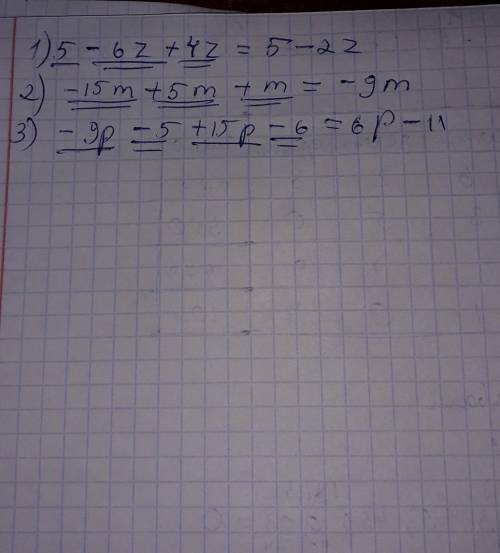 1) 5 - 6z + 4z = 5 - 2z
2) -15m + 5m + m = -9m
3) -9p - 5 + 15p - 6 = 6p - 11